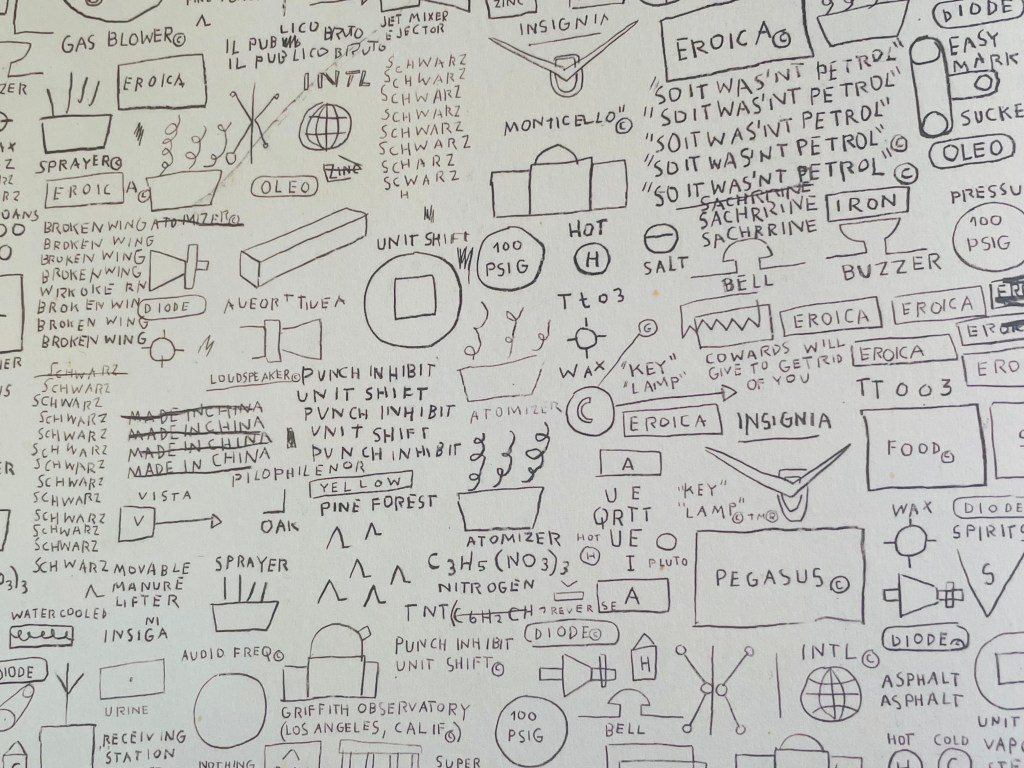 ZINC
DIODE
GAS BLOWER©
LICO BRUTO
IL PUBLICO BRUTO
IL PUBLICO
JET MIXER
EJECTOR
INSIGNIA
EROICA©
EASY
MARK
SUCKE
OLEO
EROICA
INTL
SCHWARZ
SCHWARZ
SCHWARZ
SCHWARZ
SCHWARZ
SCHWARZ
SCHARZ
SCWARZ
H
MONTICELLO"©
"SO IT WAS'NT PETROL"
"SO IT WAS'NT PETROL"
"SO IT WAS'NT PETROL"©
"SO IT WAS'NT PETROL"©
"SO IT WAS'NT PETROL"
SACHRRIINE
SACHRRIINE
SACHRRIINE
IRON
PRESSU
100
PSIG
SPRAYER©
EROICA©
OLEO
ZINC
ATOMIZER©
BROKEN WING
BROKEN WING
BROKEN WING
BROKEN WING
BROKEN WIN
BROKEN WING
BROKEN WING
DIODE
UNIT SHIFT
100
PSIG
HOT
H
SALT
BELL
BUZZER
Tt03
WAX
G
"KEY"
"LAMP"
C
EROICA
EROICA
EROICA
EROICA
EROICA
COWARDS WILL
GIVE TO GET RID
OF YOU
TT003
LOUDSPEAKER©
SCHWARZ
SCHWARZ
SCHWARZ
SCHWARZ
SCHWARZ
SCHWARZ
SCHWARZ
SCHWARZ
SCHWARZ
SCHWARZ
SCHWARZ
SCHWARZ
SCHWARZ
SCHWARZ
MADE IN CHINA
MADE IN CHINA
MADE IN CHINA
MADE IN CHINA
PUNCH INHIBIT
UNIT SHIFT
PUNCH INHIBIT
UNIT SHIFT
PUNCH INHIBIT
PILOPHILENOR
YELLOW
PINE FOREST
ATOMIZER
VISTA
V
OAK
INSIGNIA
FOOD©
A
UE
QRTT
UE
I
"KEY"
"LAMP"©™®
PLUTO
HOT
H
ATOMIZER
C3H5(NO3)3
NITROGEN
TNT(C6H2CH
TREVERSE
A
PEGASUS©
WAX
DIODE
SPIRITS
S
MOVABLE
MANURE
LIFTER
SPRAYER
WATER COOLED
INSIGA
NI
AUDIO FREQ©
PUNCH INHIBIT
UNIT SHIFT©
DIODE©
H
INTL©
DIODE
ASPHALT
ASPHALT
DIODE
URINE
GRIFFITH OBSERVATORY
(LOS ANGELES, CALIF©)
100
PSIG
BELL
UNIT
"RECEIVING
STATION"
NOTHING
SUPER
HOT
COLD
VAPO
H
C